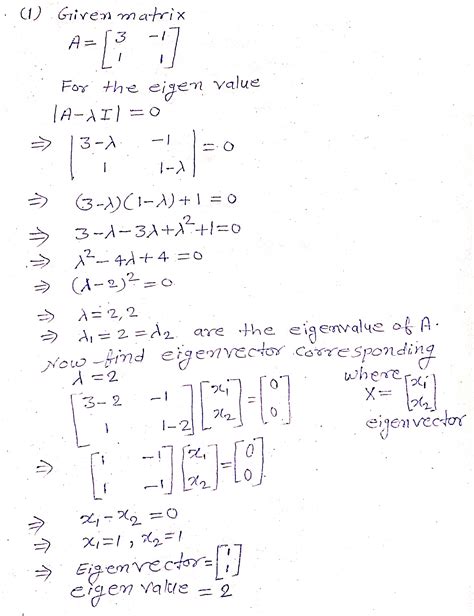 (1) Given matrix
A = [3 -1
1 1]
For the eigen value
|A-λI| = 0
⇒ |3-λ -1
1 1-λ| = 0
⇒ (3-λ)(1-λ)+1 = 0
⇒ 3-λ-3λ+λ²+1=0
⇒ λ²-4λ+4 = 0
⇒ (λ-2)² = 0
⇒ λ=2,2
⇒ λ₁=2=λ₂ are the eigenvalue of A.
Now find eigenvector corresponding
λ=2
[3-2 -1
1 1-2] [x₁
x₂] = [0
0]
where
X = [x₁
x₂]
eigenvector
⇒ [1 -1
1 -1] [x₁
x₂] = [0
0]
⇒ x₁-x₂ = 0
⇒ x₁=1, x₂=1
⇒ Eigenvector = [1
1]
eigen value = 2